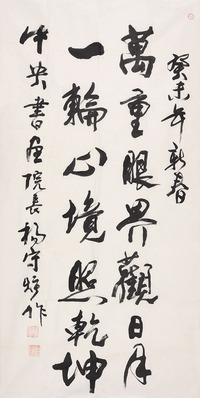 癸未年新春
萬重眼界觀日月
一輪心境照乾坤
中央書画院院長楊守財作